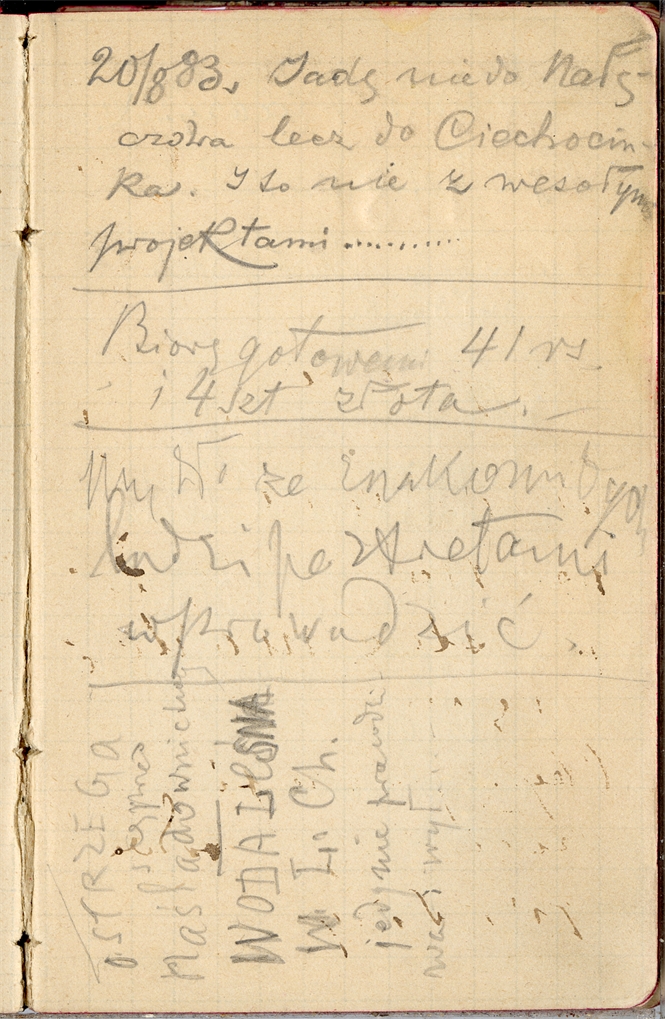 20/8 83. Jadę nie do Nałę-
czowa lecz do Ciechocin-
ka. I to nie z wesołym
projektami ............
Biorę gotowemi 41 rs
i 4 szt złota.
ze znakomitych
ludzi
wprowadzić.
OSTRZEGA
Naśladownictw
WODA LEŚNA
W. L. Ch.
jedynie prawdzi